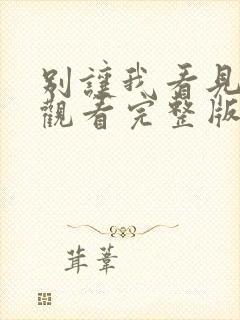 別讓我看見
觀看完整版
茸葦